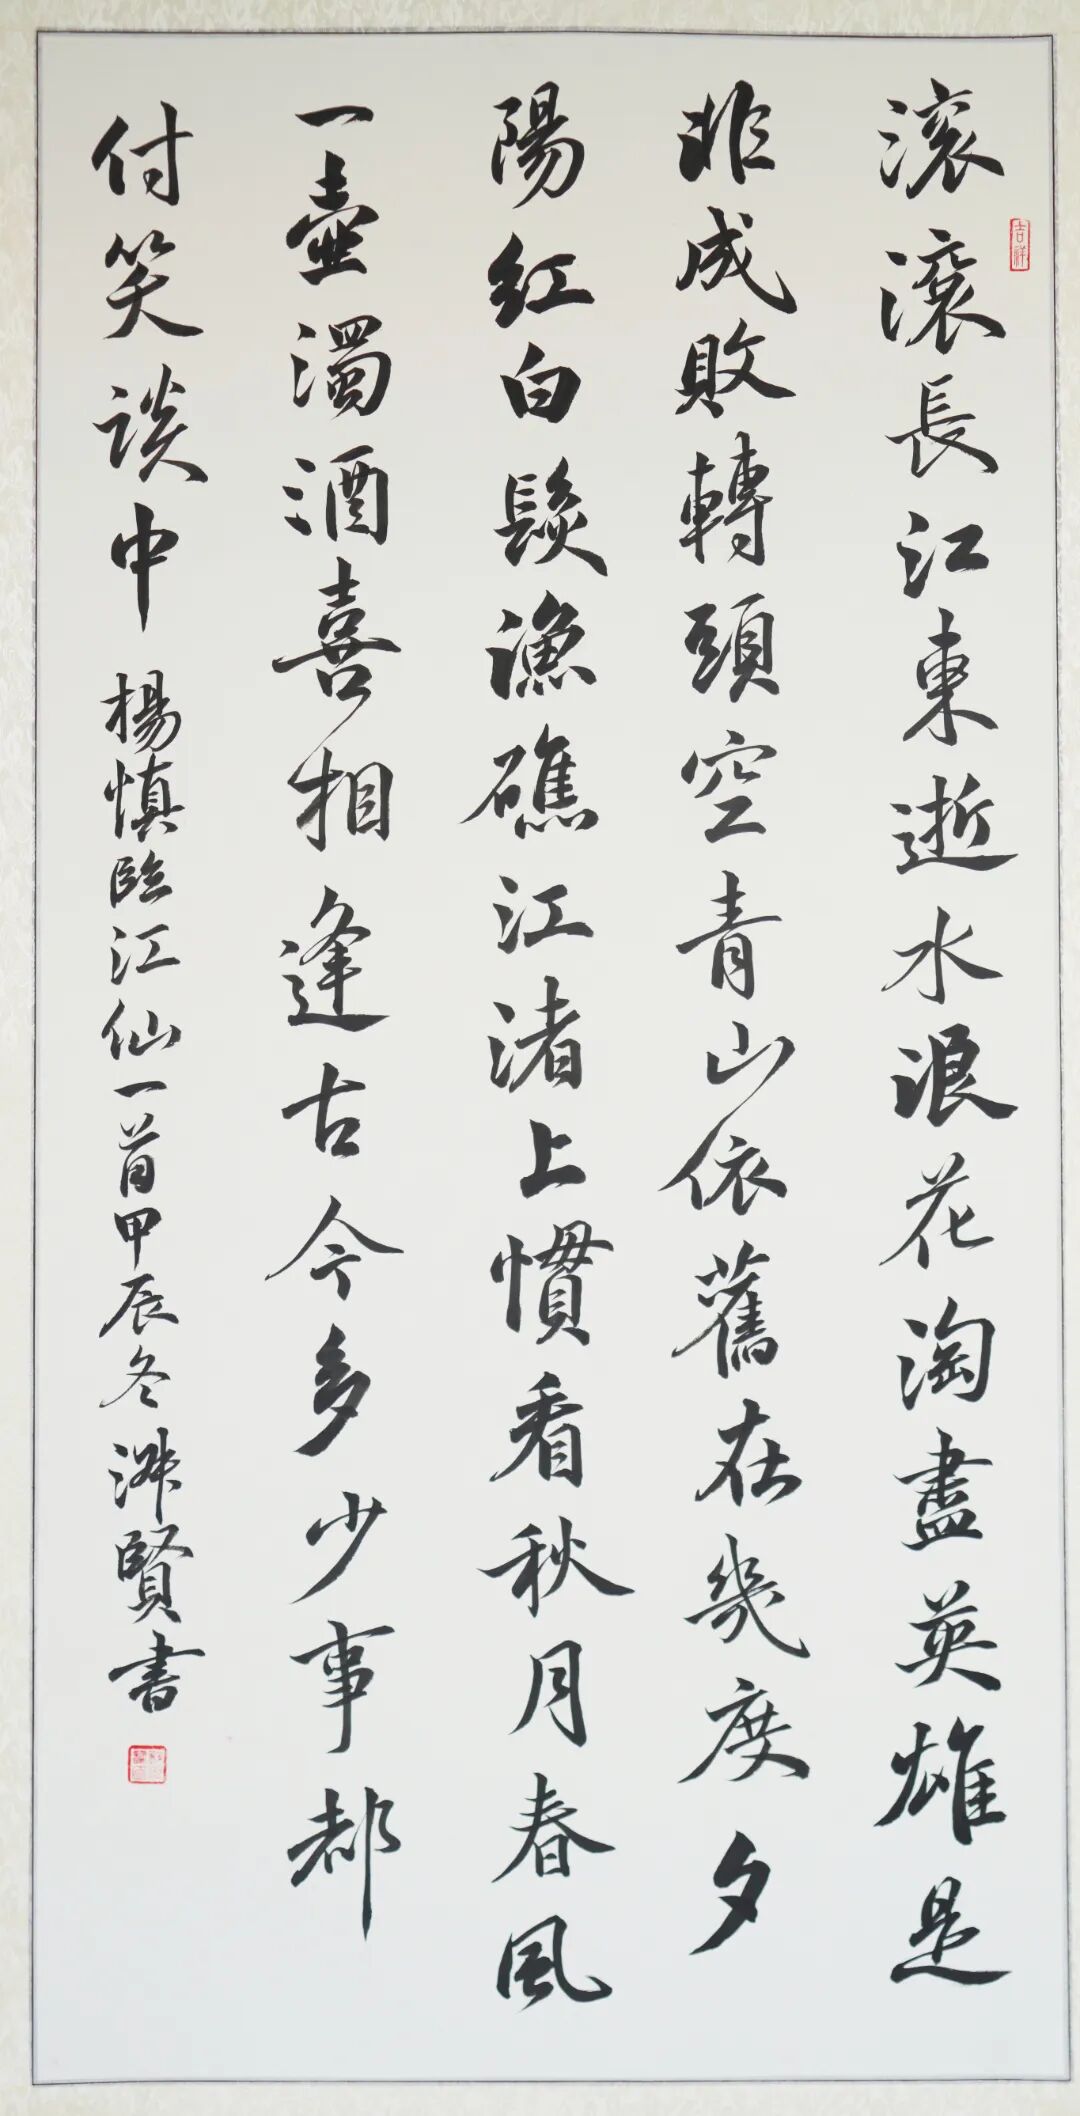 滚滚長江東逝水浪花淘盡英雄是
非成敗轉頭空青山依舊在幾度夕
陽紅白髮漁樵江渚上慣看秋月春風
一壺濁酒喜相逢古今多少事都
付笑談中 楊慎臨江仙一首甲辰冬 賢書
吉祥